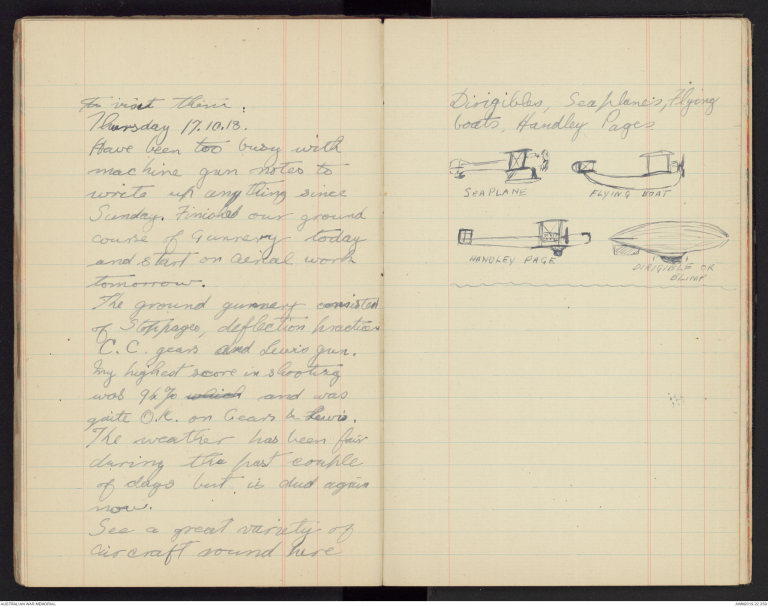 to visit them.
Thursday 17.10.18.
Have been too busy with
machine gun notes to
write up anything since
Sunday. Finished our ground
course of Gunnery today
and start on aerial work
tomorrow.
The ground gunnery consisted
of Stoppages, deflection practice
C.C. gears and Lewis gun.
My highest score in shooting
was 94% which and was
quite O.K. on Gears & Lewis.
The weather has been fair
during the past couple
of days but is dud again
now.
See a great variety of
aircraft round here
Dirigibles, Seaplanes, Flying
boats, Handley Pages.
SEAPLANE
FLYING BOAT
HANDLEY PAGE
DIRIGIBLE OR
BLIMP
AUSTRALIAN WAR MEMORIAL